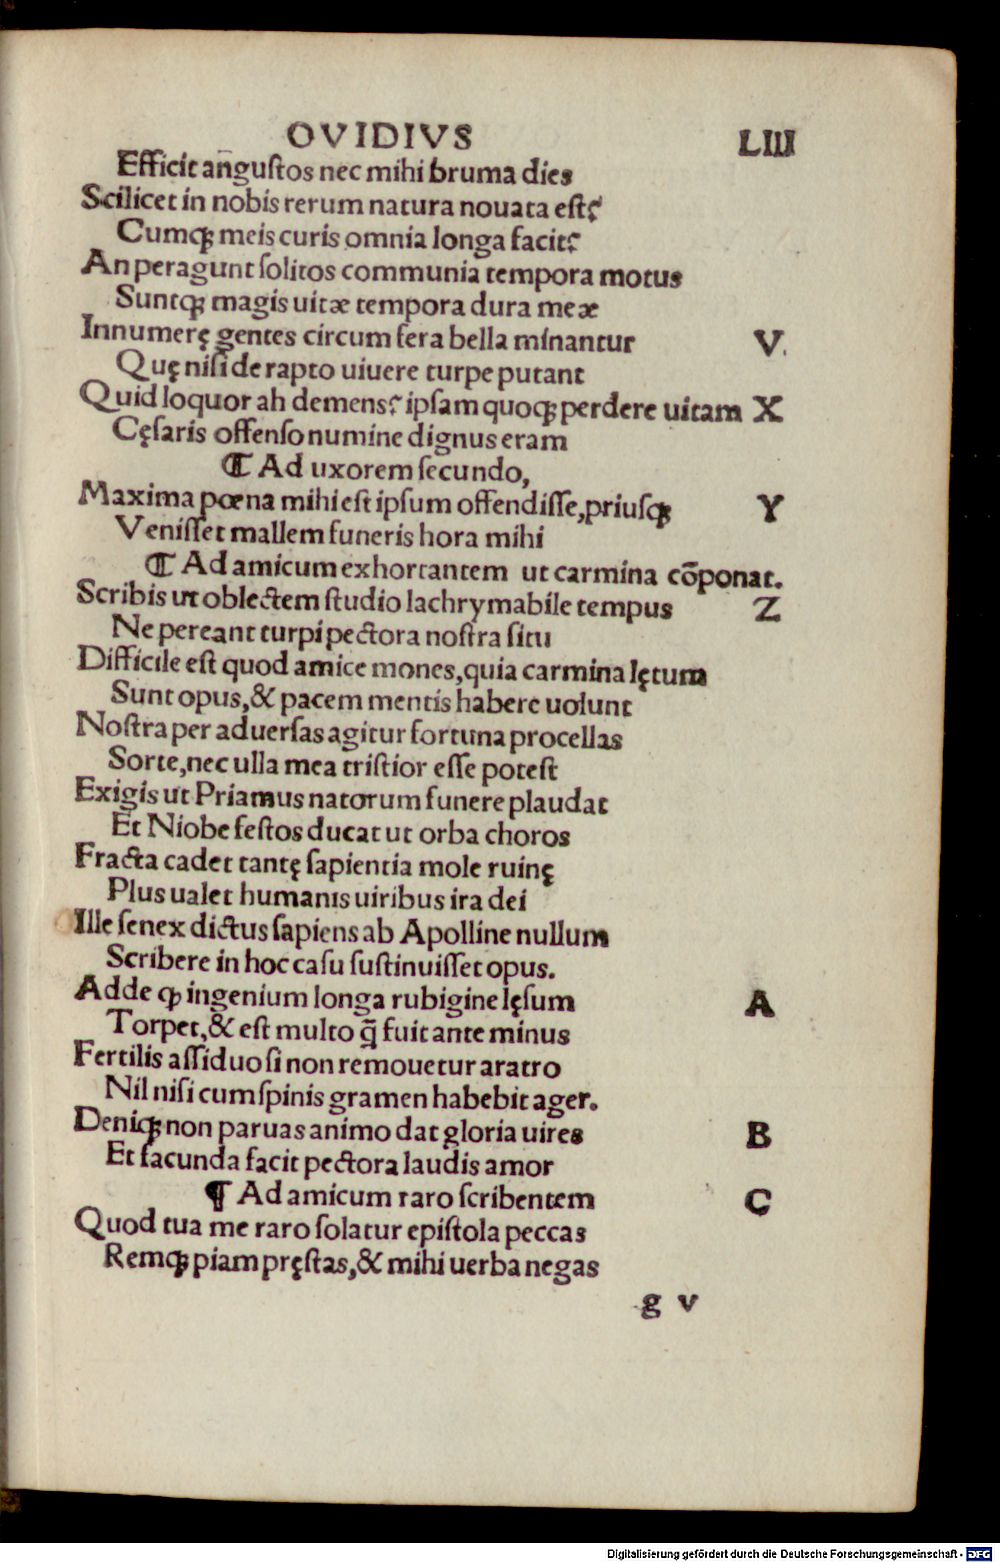 OVIDIVS LIII
Efficit an̄gustos nec mihi bruma dies
Scilicet in nobis rerum natura nouata est?
Cumqꝫ meis curis omnia longa facit?
An peragunt solitos communia tempora motus
Suntqꝫ magis uitæ tempora dura meæ
Innumerę gentes circum fera bella minantur V
Quę nisi de rapto uiuere turpe putant
Quid loquor ah demens? ipsam quoqꝫ perdere uitam X
Cęsaris offenso numine dignus eram
¶ Ad uxorem secundo,
Maxima pœna mihi est ipsum offendisse, priusqꝫ Y
Venisset mallem funeris hora mihi
¶ Ad amicum exhortantem ut carmina cōponat.
Scribis ut oblectem studio lachrymabile tempus Z
Ne pereant turpi pectora nostra situ
Difficile est quod amice mones, quia carmina lętum
Sunt opus, & pacem mentis habere uolunt
Nostra per aduersas agitur fortuna procellas
Sorte, nec ulla mea tristior esse potest
Exigis ut Priamus natorum funere plaudat
Et Niobe festos ducat ut orba choros
Fracta cadet tantę sapientia mole ruinę
Plus ualet humanis uiribus ira dei
Ille senex dictus sapiens ab Apolline nullum
Scribere in hoc casu sustinuisset opus.
Adde ꝙ ingenium longa rubigine lęsum A
Torpet, & est multo q̃ fuit ante minus
Fertilis assiduo si non remouetur aratro
Nil nisi cum spinis gramen habebit ager.
Deniqꝫ non paruas animo dat gloria uires B
Et facunda facit pectora laudis amor
¶ Ad amicum raro scribentem C
Quod tua me raro solatur epistola peccas
Remqꝫ piam pręstas, & mihi uerba negas
g v
Digitalisierung gefördert durch die Deutsche Forschungsgemeinschaft - DFG